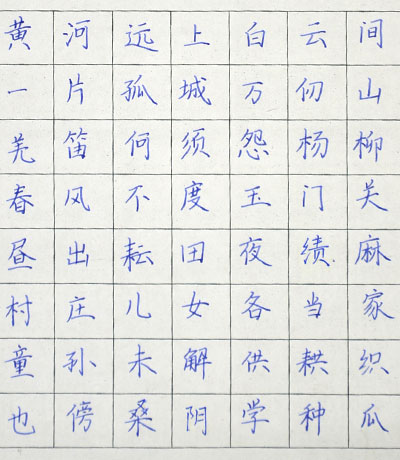 黄河远上白云间
一片孤城万仞山
羌笛何须怨杨柳
春风不度玉门关
昼出耘田夜绩麻
村庄儿女各当家
童孙未解供耕织
也傍桑阴学种瓜